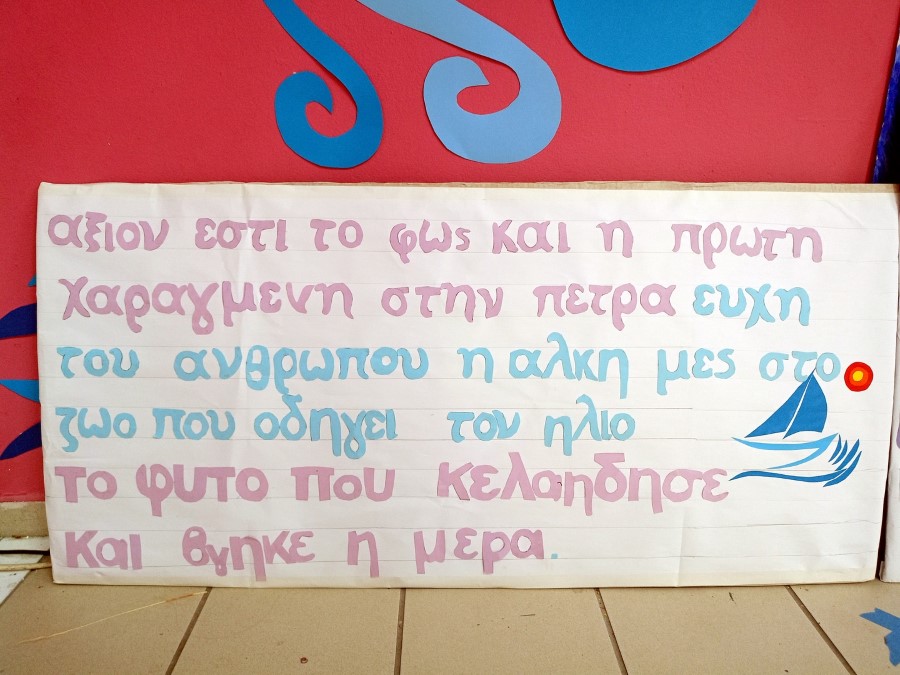 αξιον εστι το φως και η πρωτη
χαραγμενη στην πετρα ευχη
του ανθρωπου η αλκη μες στο
ζωο που οδηγει τον ηλιο
το φυτο που κελαηδησε
και βγηκε η μερα.